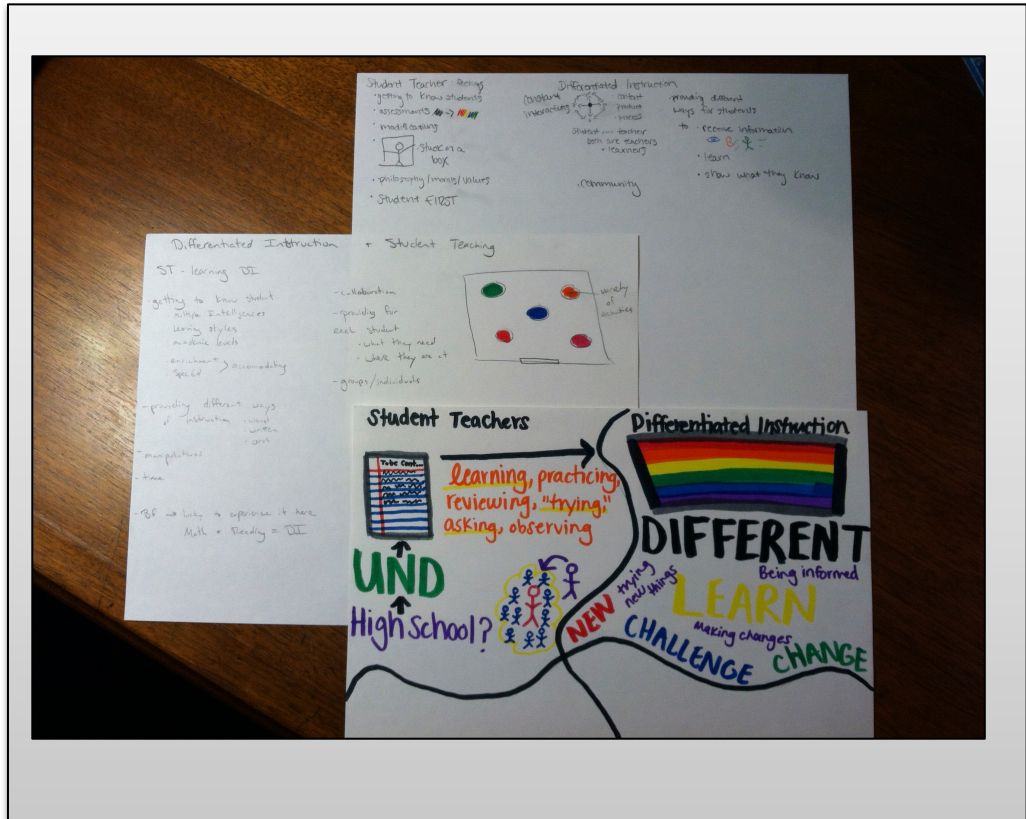 Student Teacher
• getting to know students
• assessments
• modifications
stuck in a
box
• philosophy/morals/values
• Student FIRST
Differentiated Instruction
constant
interacting
content
product
process
Student teacher
both are teachers
• learners
• community
providing different
ways for students
to • receive information
• learn
• show what they know
Differentiated Instruction + Student Teaching
ST - learning DI
- getting to know student
multiple Intelligences
learning styles
academic levels
- enrichment
accomodating
- providing different ways
of instruction - word
written
- manipulatives
- time
Math + Reading = DI
- collaboration
- providing for
each student
• what they need
• where they are at
- groups/individuals
variety
of
activities
Student Teachers
To be Cont...
learning, practicing,
reviewing, "trying,"
asking, observing
UND
High School?
Differentiated Instruction
DIFFERENT
Being informed
trying
new things
LEARN
NEW
Making changes
CHALLENGE
CHANGE